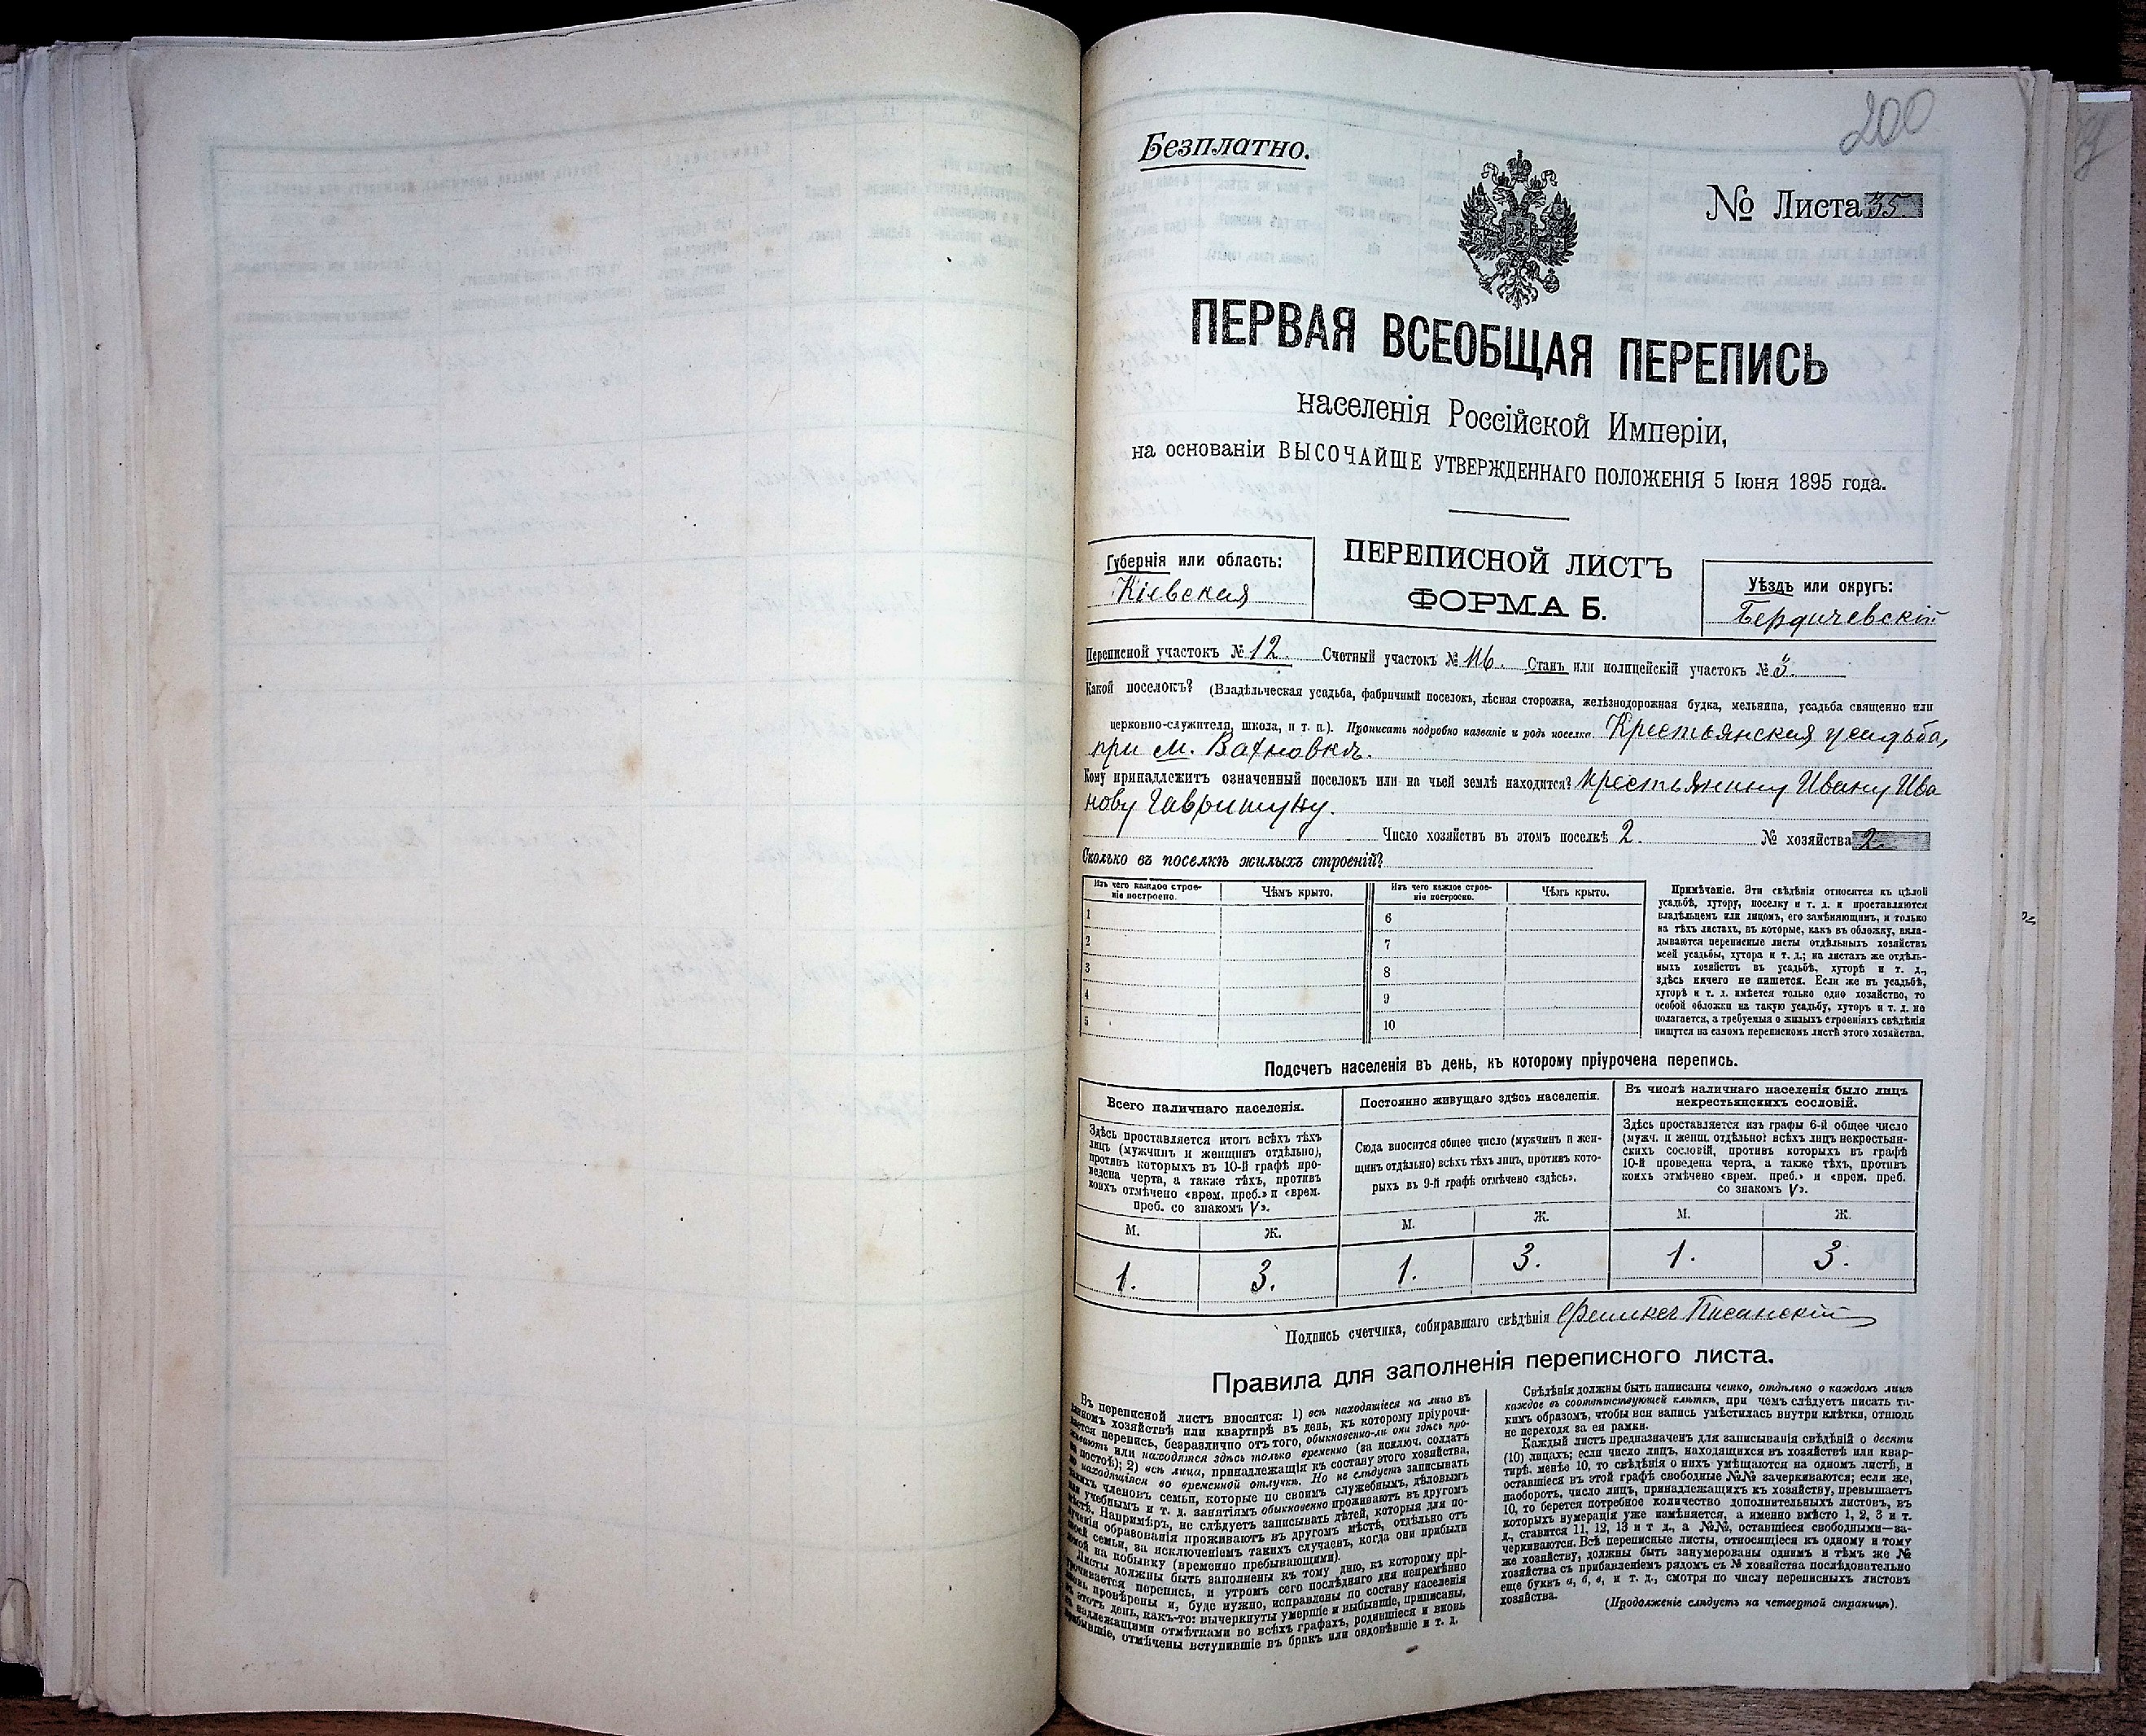 200
Безплатно.
№ Листа 35.
ПЕРВАЯ ВСЕОБЩАЯ ПЕРЕПИСЬ
населенія Россійской Имперіи,
на основаніи ВЫСОЧАЙШЕ УТВЕРЖДЕННАГО ПОЛОЖЕНІЯ 5 Іюня 1895 года.
Губернія или область:
Кіевская
ПЕРЕПИСНОЙ ЛИСТЪ
ФОРМА Б.
Уѣздъ или округъ:
Бердичевскій
Переписной участокъ № 12. Счетный участокъ № Станъ или полицейскій участокъ № 3.
Какой поселокъ? (Владѣльческая усадьба, фабричный поселокъ, лѣсная сторожка, желѣзнодорожная будка, мельница, усадьба священно или
церковно-служителя, школа, и т. п.). Прописать подробно названіе и родъ поселка. Крестьянская усадьба,
при м. Вахновкѣ.
Кому принадлежитъ означенный поселокъ или на чьей землѣ находится? крестьянину Ивану Ива
нову Гавришуку.
Число хозяйствъ въ этомъ поселкѣ 2. № хозяйства 2.
Сколько въ поселкѣ жилыхъ строеній?
Изъ чего каждое строе-
ніе построено.
Чѣмъ крыто.
Изъ чего каждое строе-
ніе построено.
Чѣмъ крыто.
1
2
3
4
5
6
7
8
9
10
Примѣчаніе. Эти свѣдѣнія относятся къ цѣлой
усадьбѣ, хутору, поселку и т. д. и проставляются
владѣльцемъ или лицомъ, его замѣняющимъ, и только
на тѣхъ листахъ, въ которые, какъ въ обложку, вкла-
дываются переписные листы отдѣльныхъ хозяйствъ
всей усадьбы, хутора и т. д.; на листахъ же отдѣль-
ныхъ хозяйствъ въ усадьбѣ, хуторѣ и т. д.,
здѣсь ничего не пишется. Если же въ усадьбѣ,
хуторѣ и т. д. имѣется только одно хозяйство, то
особой обложки на такую усадьбу, хуторъ и т. д. не
полагается, а требуемыя о жилыхъ строеніяхъ свѣдѣнія
пишутся на самомъ переписномъ листѣ этого хозяйства.
Подсчетъ населенія въ день, къ которому пріурочена перепись.
Всего наличнаго населенія.
Здѣсь проставляется итогъ всѣхъ тѣхъ
лицъ (мужчинъ и женщинъ отдѣльно),
противъ которыхъ въ 10-й графѣ про-
ведена черта, а также тѣхъ, противъ
коихъ отмѣчено «врем. преб.» и «врем.
преб. со знакомъ V».
Постоянно живущаго здѣсь населенія.
Сюда вносится общее число (мужчинъ и жен-
щинъ отдѣльно) всѣхъ тѣхъ лицъ, противъ кото-
рыхъ въ 9-й графѣ отмѣчено «здѣсь».
Въ числѣ наличнаго населенія было лицъ
некрестьянскихъ сословій.
Здѣсь проставляется изъ графы 6-й общее число
(мужч. и женщ. отдѣльно) всѣхъ лицъ некрестьян-
скихъ сословій, противъ которыхъ въ графѣ
10-й проведена черта, а также тѣхъ, противъ
коихъ отмѣчено «врем. преб.» и «врем. преб.
со знакомъ V».
М. Ж. М. Ж. М. Ж.
1. 3. 1. 3. 1. 3.
Подпись счетчика, собиравшаго свѣдѣнія Феликсъ Писанскій
Правила для заполненія переписного листа.
Въ переписной листъ вносятся: 1) всѣ находящіеся на лицо въ
данномъ хозяйствѣ или квартирѣ въ день, къ которому пріурочи-
вается перепись, безразлично отъ того, обыкновенно-ли они здѣсь про-
живаютъ или находятся здѣсь только временно (за исключ. солдатъ
на постоѣ); 2) всѣ лица, принадлежащія къ составу этого хозяйства,
но находящіяся во временной отлучкѣ. Но не слѣдуетъ записывать
такихъ членовъ семьи, которые по своимъ служебнымъ, дѣловымъ
или учебнымъ и т. д. занятіямъ обыкновенно проживаютъ въ другомъ
мѣстѣ. Напримѣръ, не слѣдуетъ записывать дѣтей, которыя для по-
лученія образованія проживаютъ въ другомъ мѣстѣ, отдѣльно отъ
своей семьи, за исключеніемъ такихъ случаевъ, когда они прибыли
домой на побывку (временно пребывающими).
Листы должны быть заполнены къ тому дню, къ которому прі-
урочивается перепись, и утромъ сего послѣдняго дня непремѣнно
вновь провѣрены и, буде нужно, исправлены по составу населенія
въ этотъ день, какъ-то: вычеркнуты умершіе и выбывшіе, приписаны,
съ надлежащими отмѣтками во всѣхъ графахъ, родившіеся и вновь
прибывшіе, отмѣчены вступившіе въ бракъ или овдовѣвшіе и т. д.
Свѣдѣнія должны быть написаны четко, отдѣльно о каждомъ лицѣ
каждое въ соотвѣтствующей клѣткѣ, при чемъ слѣдуетъ писать та-
кимъ образомъ, чтобы вся запись умѣстилась внутри клѣтки, отнюдь
не переходя за ея рамки.
Каждый листъ предназначенъ для записыванія свѣдѣній о десяти
(10) лицахъ; если число лицъ, находящихся въ хозяйствѣ или квар-
тирѣ, менѣе 10, то свѣдѣнія о нихъ умѣщаются на одномъ листѣ, и
оставшіеся въ этой графѣ свободные №№ зачеркиваются; если же,
наоборотъ, число лицъ, принадлежащихъ къ хозяйству, превышаетъ
10, то берется потребное количество дополнительныхъ листовъ, въ
которыхъ нумерація уже измѣняется, а именно вмѣсто 1, 2, 3 и т.
д., ставится 11, 12, 13 и т д., а №№, оставшіеся свободными—за-
черкиваются. Всѣ переписные листы, относящіеся къ одному и тому
же хозяйству, должны быть занумерованы однимъ и тѣмъ же №
хозяйства съ прибавленіемъ рядомъ съ № хозяйства послѣдовательно
еще буквъ а, б, в, и т. д., смотря по числу переписныхъ листовъ
хозяйства.
(Продолженіе слѣдуетъ на четвертой страницѣ).